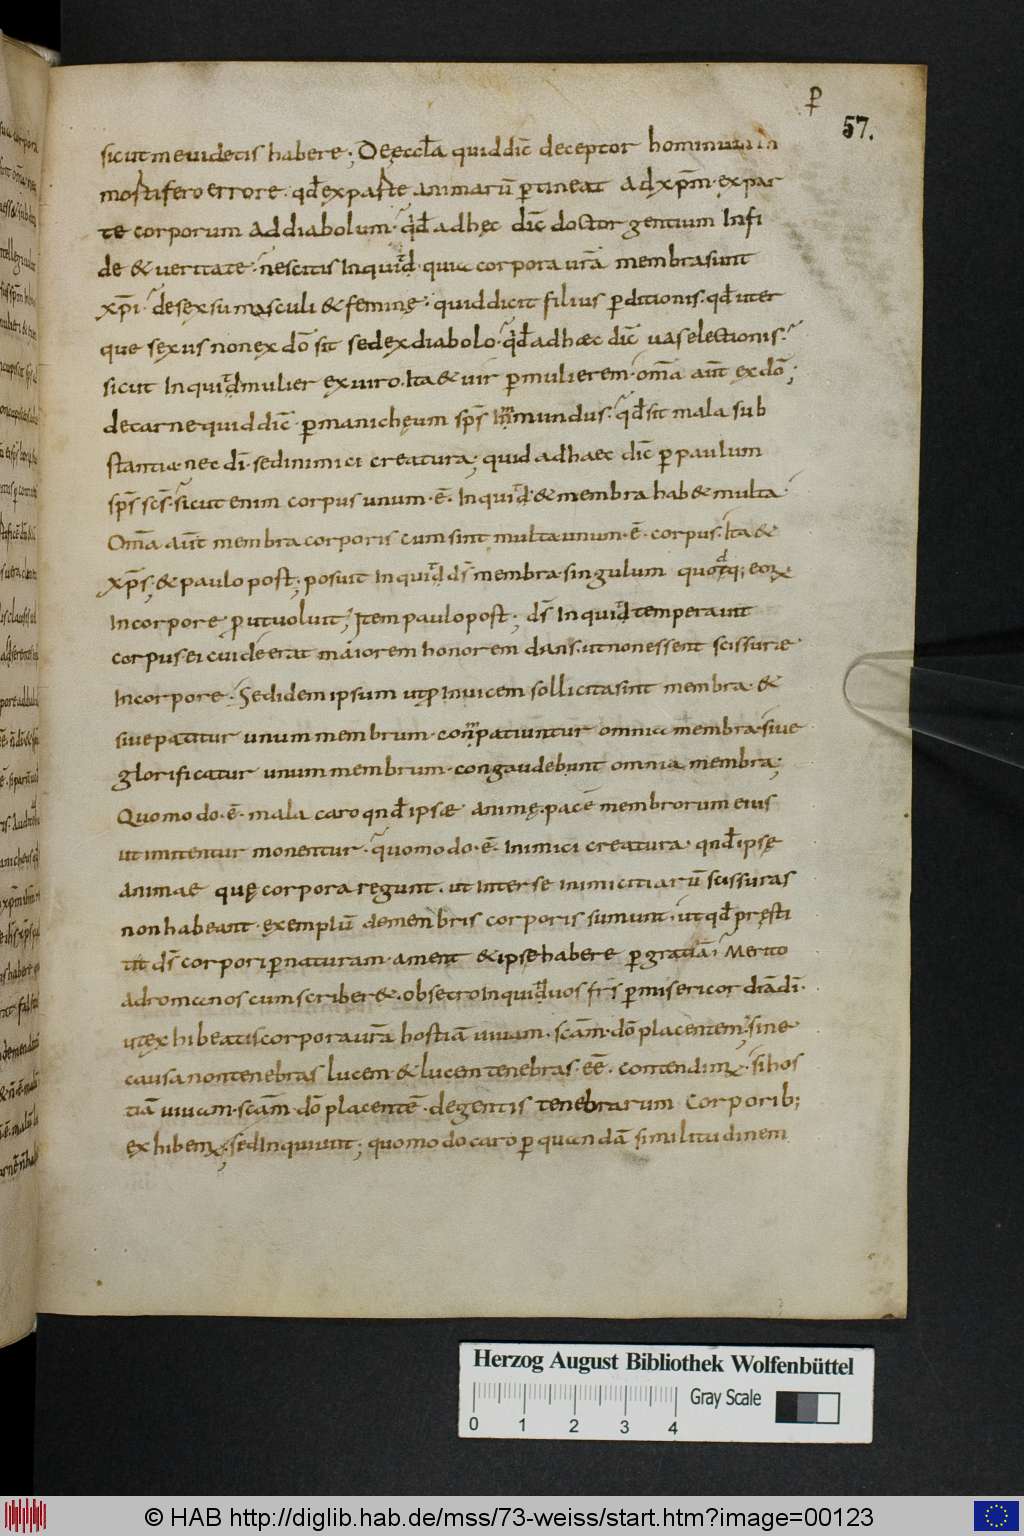 ꝑ
57.
sicut me uidetis habere; De ęccƚa quid dic̄ deceptor hominum in
mortifero errore· qđ ex parte animarū ꝑtineat ad xp̄m· ex par
te corporum ad diabolum· qđ ad hęc dic̄ doctor gentium In fi
de & ueritate· nescitis Inquid· quia corpora ur̄a membra sunt
xp̄i· de sexu masculi & feminę· quid dicit filius ꝑditionis· qđ uter
que sexus non ex do͞ sit sed ex diabolo· qđ ad haec dic̄ uas electionis·
sicut Inquid mulier ex uiro· Ita & uir ꝑ mulierem· om̄a aut̄ ex do͞;
de carne quid dic̄ ꝑ manichęum sps̄ Inmundus· qđ sit mala sub
stantia· nec di͞· sed inimici creatura; quid ad haec dic̄ ꝑ paulum
sps̄ scs̄· sicut enim corpus unum· ē· Inquid & membra hab& multa·
Om̄a aut̄ membra corporis cum sint multa unum· ē· corpus· Ita &
xps̄; & paulo post; posuit Inquid ds̄ membra singulum quodq; eoꝝ
In corpore ꝓut uoluit; Item paulo post; ds̄ Inquid temperauit
corpus ei cui deerat maiorem honorem dans· ut non essent scissurae
In corpore· Sed idem ipsum ut ꝓ Inuicem sollicita sint membra· &
siue patitur unum membrum· conpatiuntur omnia membra· siue
glorificatur unum membrum· congaudebunt omnia membra;
Quomodo· ē· mala caro qnđ ipsae animę· pacē membrorum eius
ut imitentur monentur· quomodo· ē· Inimici creatura· qnđ ipsę
animae quę corpora regunt· ut Inter se inimicitiarū scissuras
non habeant· exemplū de membris corporis sumunt· ut qđ pręsti
tit ds̄ corpori ꝑ naturam· ament & ipse habere ꝑ gratiā; Merito
ad romanos cum scriber&· obsecro Inquid uos fr̄s ꝑ misericordiā di͞·
ut exhibeatis corpora ur̄a hostiā uiuam· scām· do͞ placentem· sine
causa non tenebras lucem· & lucem tenebras· eē· contendimꝰ· si hos
tiā uiuam· scām· do͞ placentē· de gentis tenebrarum corporib;
exhibemꝰ; sed Inquiunt; quomodo caro ꝑ quandā similitudinem
Herzog August Bibliothek Wolfenbüttel
Gray Scale
0 1 2 3 4
© HAB http://diglib.hab.de/mss/73-weiss/start.htm?image=00123